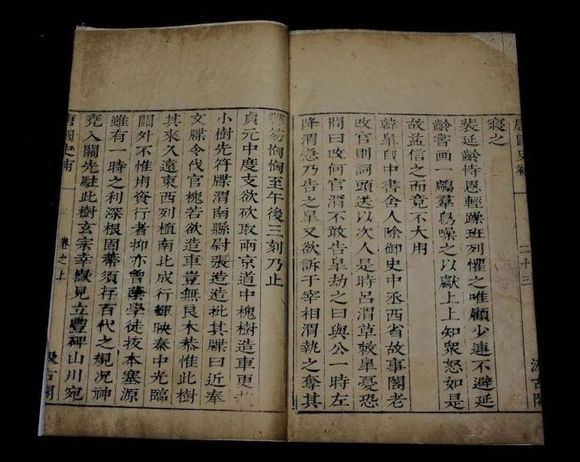 二十三
汲古閣
寢之
裴延齡恃恩輕躁班列懼之唯顧少連不避延
齡嘗畫一鵰羣鳥噪之以獻上上知衆怒如是
故益信之而竟不大用
韓皐自中書舍人除御史中丞西省故事閣老
改官則詞頭送以次人是時呂渭草敕皐憂恐
問曰改何官渭不敢告皐劫之曰與公一時左
降渭急乃告之皐又欲訴于宰相渭執之奪其
笏恟恟至午後三刻乃止
貞元中度支欲砍取兩京道中槐樹造車更
小樹先符牒渭南縣尉張造造批其牒曰近奉
文牒令伐官槐若欲造車豈無良木恭惟此樹
其來久遠東西列植南北成行輝映秦中光臨
關外不惟用資行者抑亦曾蔭學徒拔本塞源
雖有一時之利深根固蒂須存百代之規況神
堯入關先駐此樹玄宗幸嶽見立豐碑山川宛
唐國史補
卷之上
汲古閣